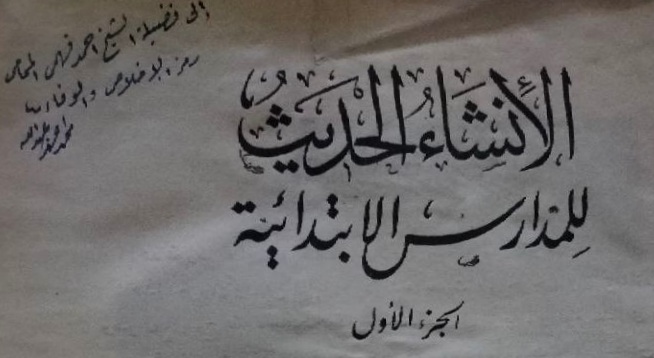 الى فضيلة الشيخ احمد فهمي
رمز الاخلاص والوفاء
محمد احمد
الإنشاء الحديث
للمدارس الابتدائية
الجزء الأول